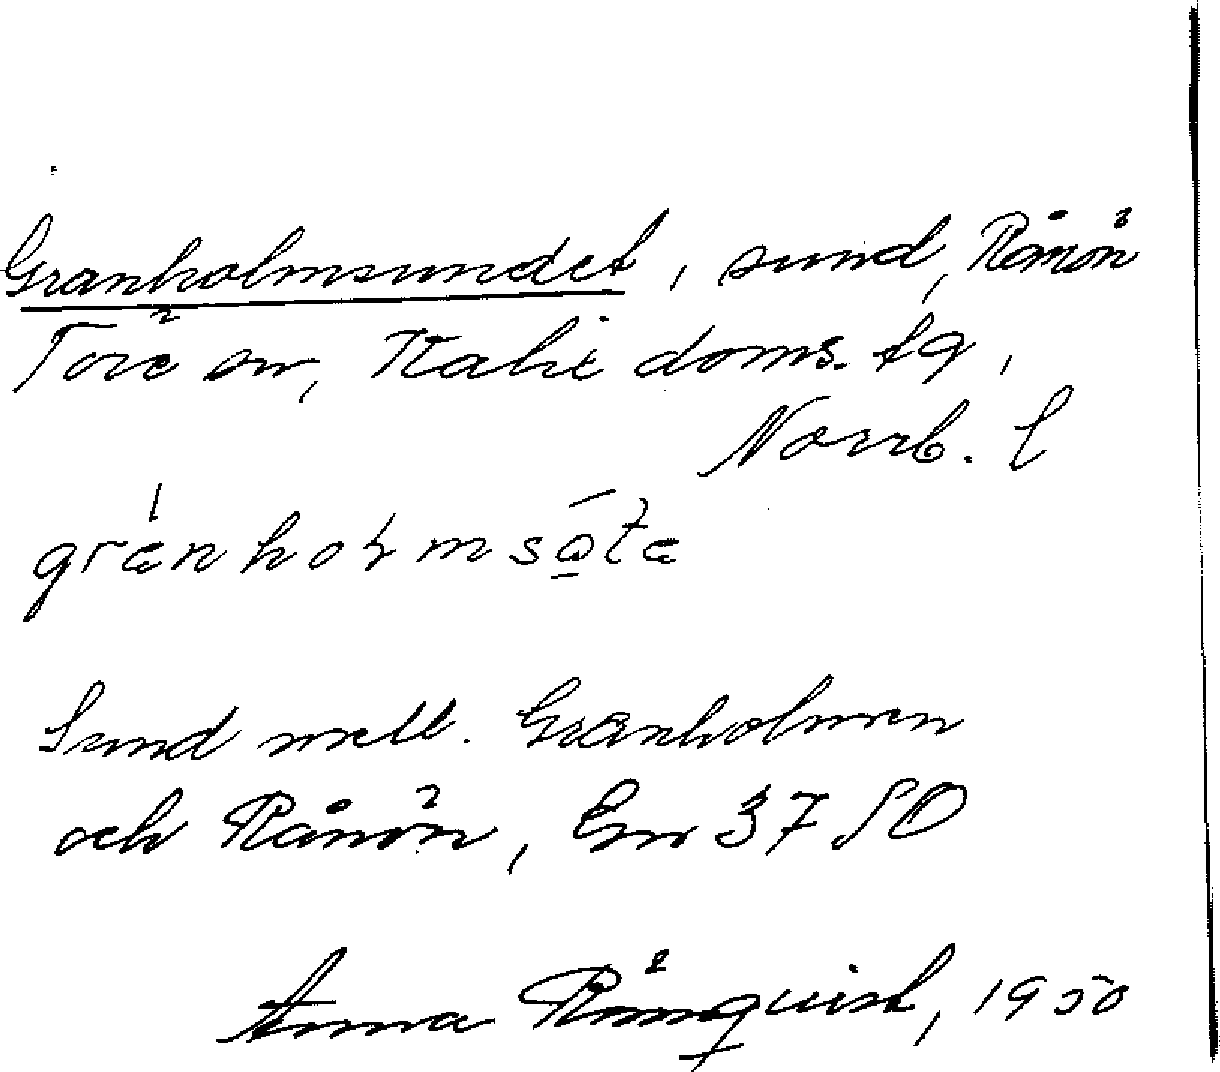 Granholmsundet, sund, Rånön
Töre sn, Kalix doms. tg,
Norrb. l
Sund mell. Granholmen
och Rånön, En 37 SO
Anna Rönquist, 1950